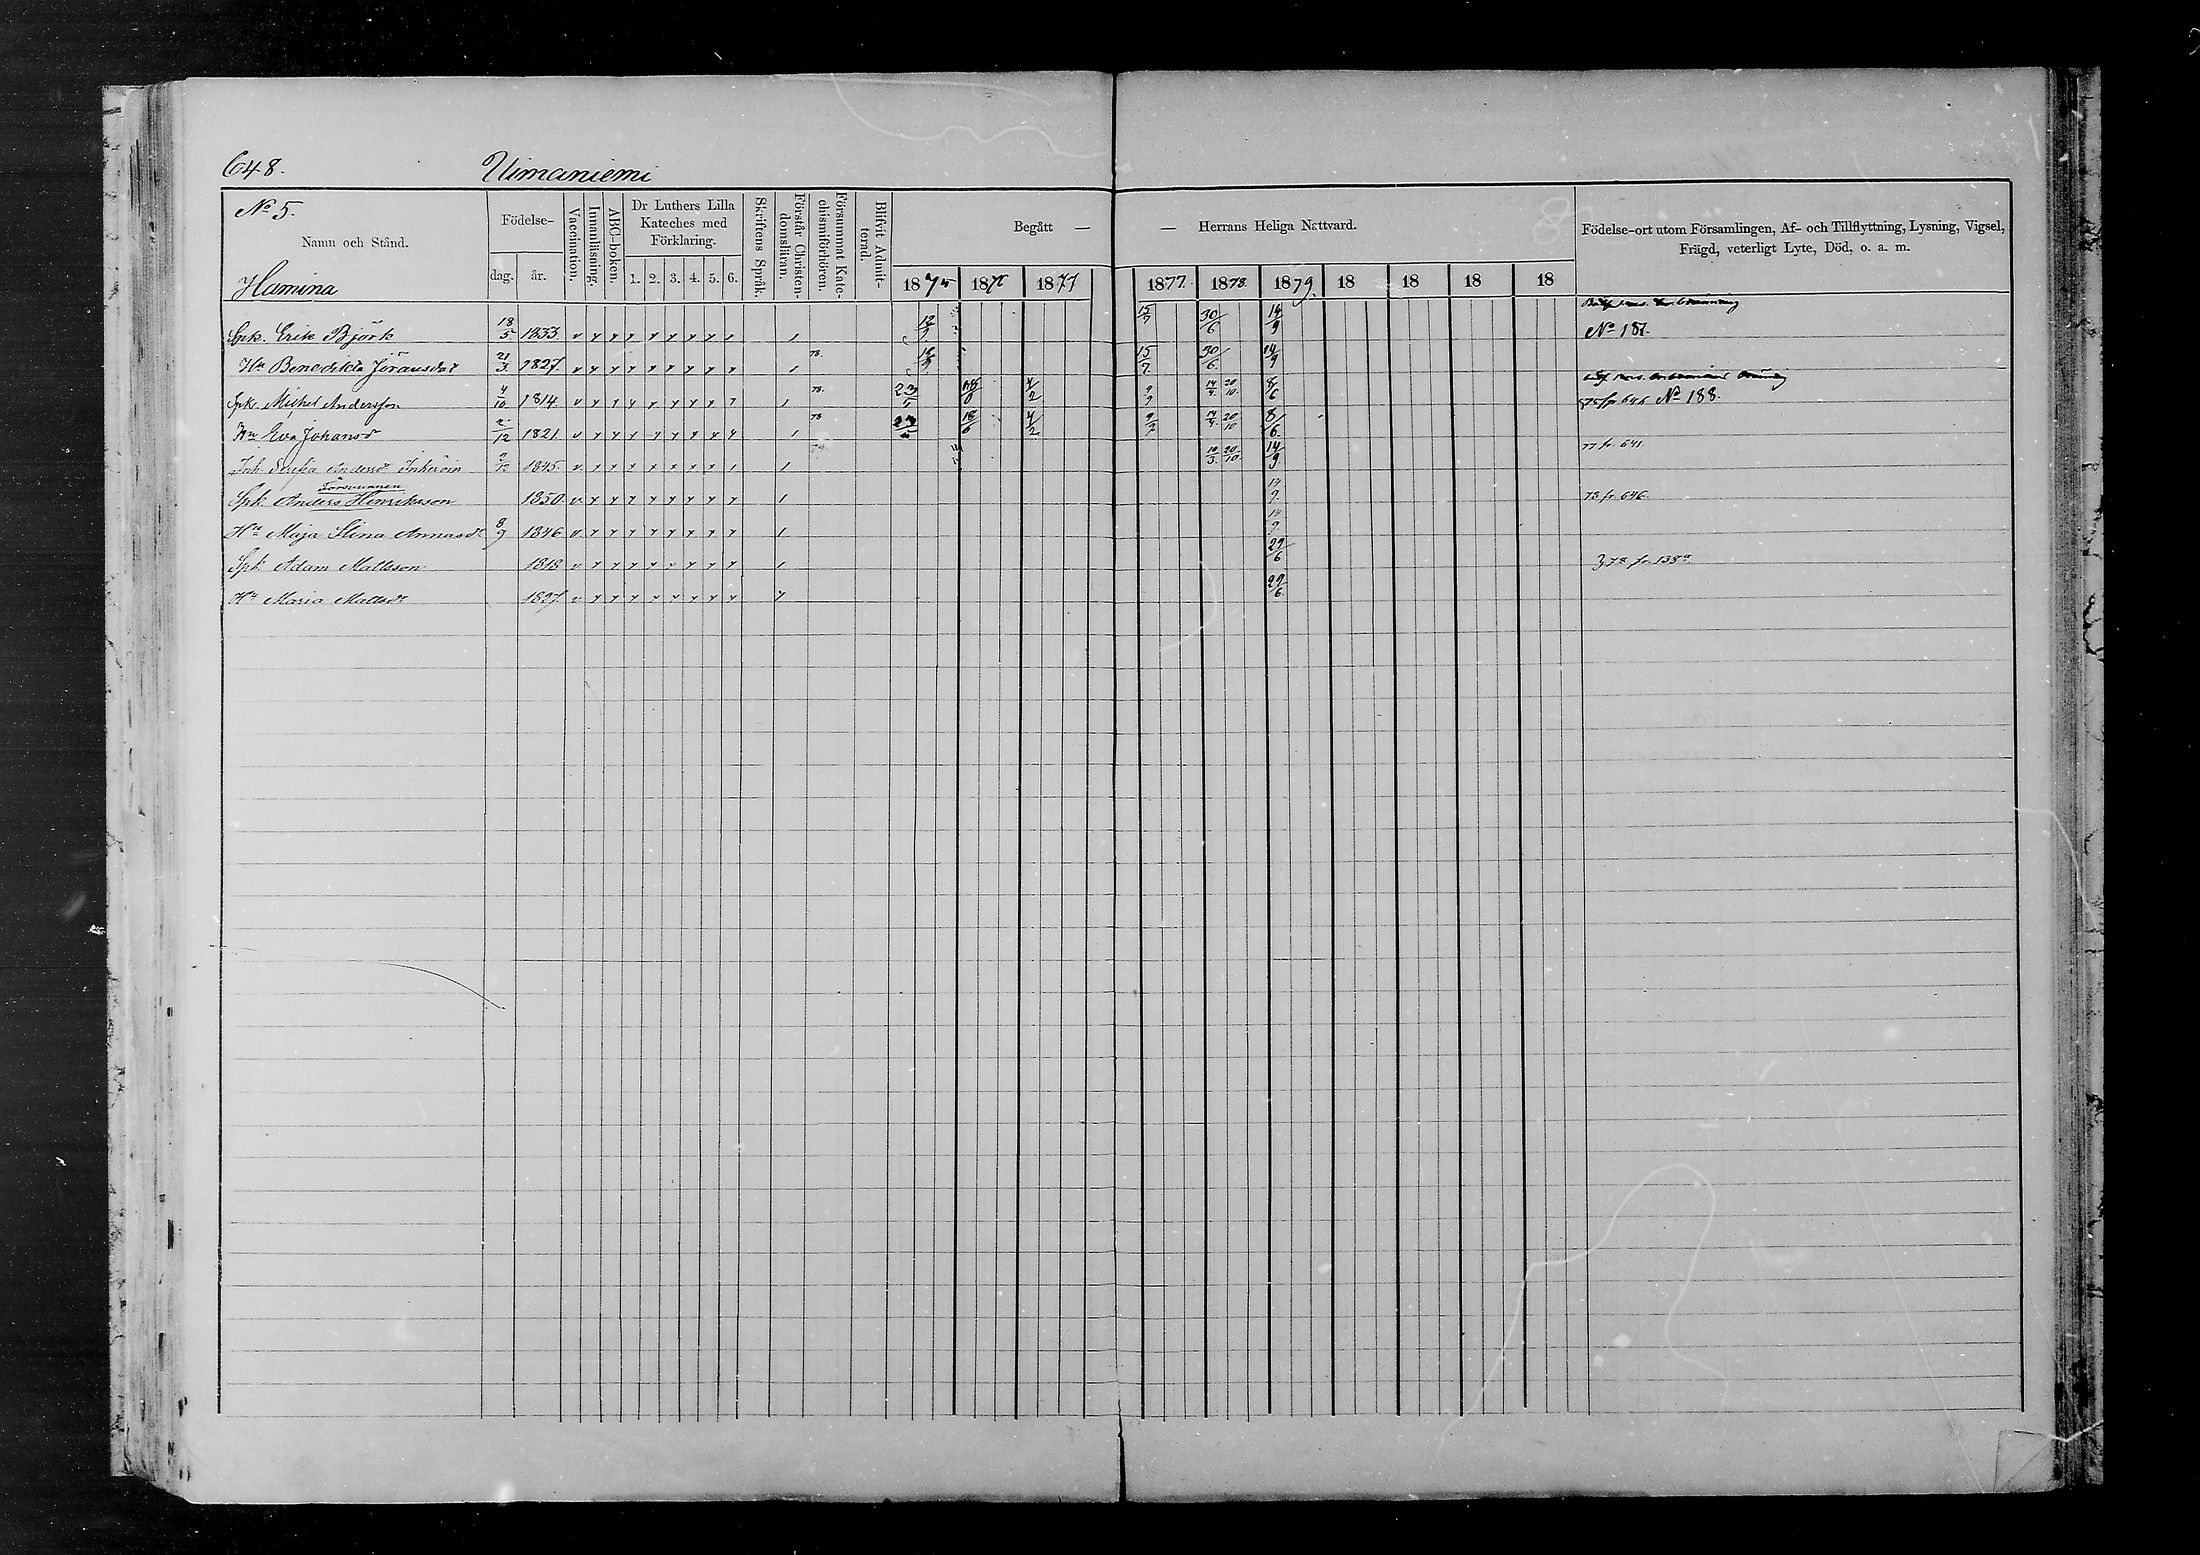 648. Uimaniemi
No 5.
Namn och Stånd.
Hamina
Födelse-
dag. år.
Vaccination.
Innanläsning.
ABC-boken.
Dr Luthers Lilla Kateches med Förklaring.
1. 2. 3. 4. 5. 6.
Skriftens Språk.
Förstår Christendomsläran.
Försummat Katechismiförhören.
Blifvit Admitterad.
Begått — — Herrans Heliga Nattvard.
1875 1876 1877 1877 1878 1879 18 18 18 18
Födelse-ort utom Församlingen, Af- och Tillflyttning, Lysning, Vigsel,
Frägd, veterligt Lyte, Död, o. a. m.
Spk. Erik Björk 18/5 1833 v 30/6 14/9 No 187.
Hu Benedikta Jöransdr 21/3 1827 v 78. 15/7 30/6 14/9
Spk. Michel Andersson 4/10 1814 v 78. 23 4/2 14/4 20/10 8/6 75 fr 646 No 188.
Hu Eva Johansd 2/12 1821 v 78 18/6 4/2 14/4 20/10 8/6
Inh. Sofia Andersdr 1845 v 20/10 14/9 77 fr 641
Försvunnen
Spk Anders Henriksson 1850 v 14/9 78 fr 646
Hu Maja Stina Annasdr 8/9 1846 v 14/9
Spk Adam Mattsson 1818 v 29/6
Hu Maria Mattsdr 1827 v 29/6